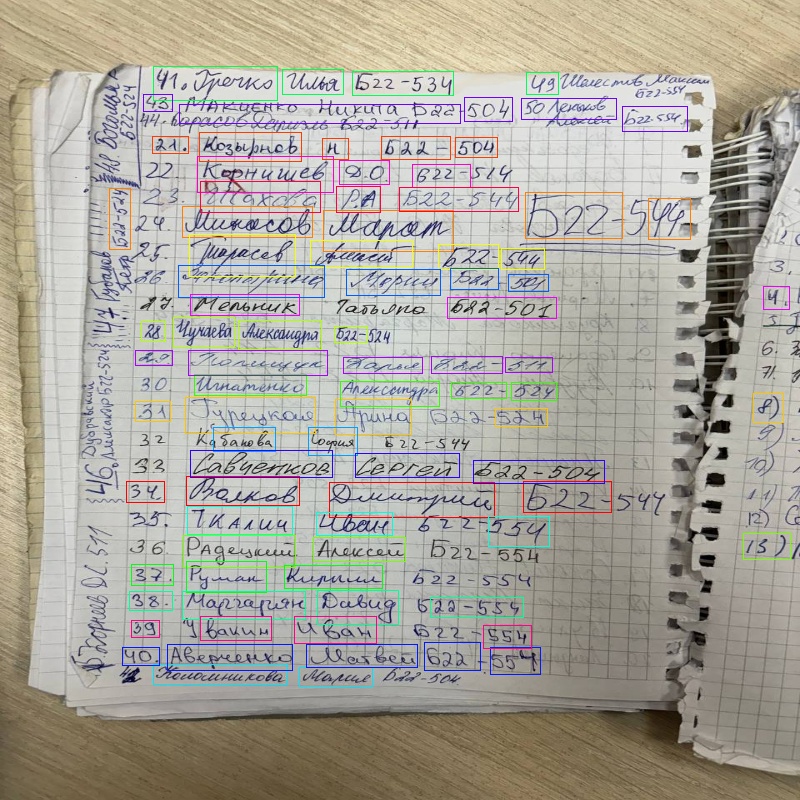 41. Гречко Илья Б22-534
49 Шелестов Максим
Б22-554
43. МАКЦЕНКО Никита Б22-504
50 Леньков
Алексей Б22-554
44. Барасов Даниэль Б22-511
21. Козырнов Н Б22-504
22. Корнишев Д.О. Б22-514
23. Шахова РА Б22-544
24. Миносов Марат Б22-544
25. Тарасев Б22-544
26. Мария Б22-501
27. Мельник Татьяна Б22-501
28 Чучаева Александра Б22-524
29 Полищук Дарья Б22-511
30 Игнатенко Александра Б22-524
31 Турецкая Арина Б22-524
32 Кабанова София Б22-544
33 Савченков Сергей Б22-504
34. Волков Дмитрий Б22-544
35. Ткалич Иван Б22-554
36. Радецкий Алексей Б22-554
37. Руман Кирилл Б22-554
38. Маргарян Давид Б22-554
39 Увакин Иван Б22-554
40. Аверченко Матвей Б22-554
42 Коломникова Мария Б22-504
48
Б22-524
47 Губанов
Б22-524
46 Дубравский
Б22-524
Корнеев ДС. 511
3.
4.
5
6.
7.
8)
9)
10)
11)
12)
13)